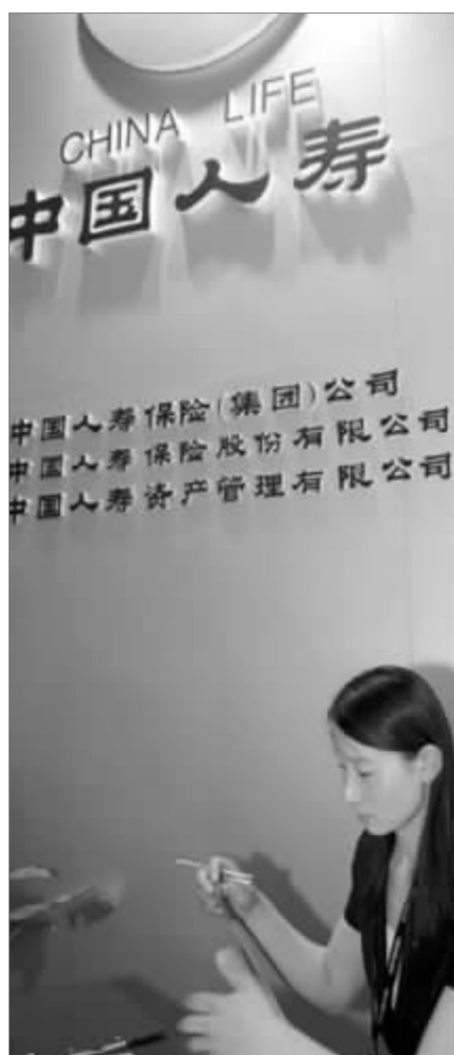 CHINA LIFE
中国人寿
中国人寿保险(集团)公司
中国人寿保险股份有限公司
中国人寿资产管理有限公司